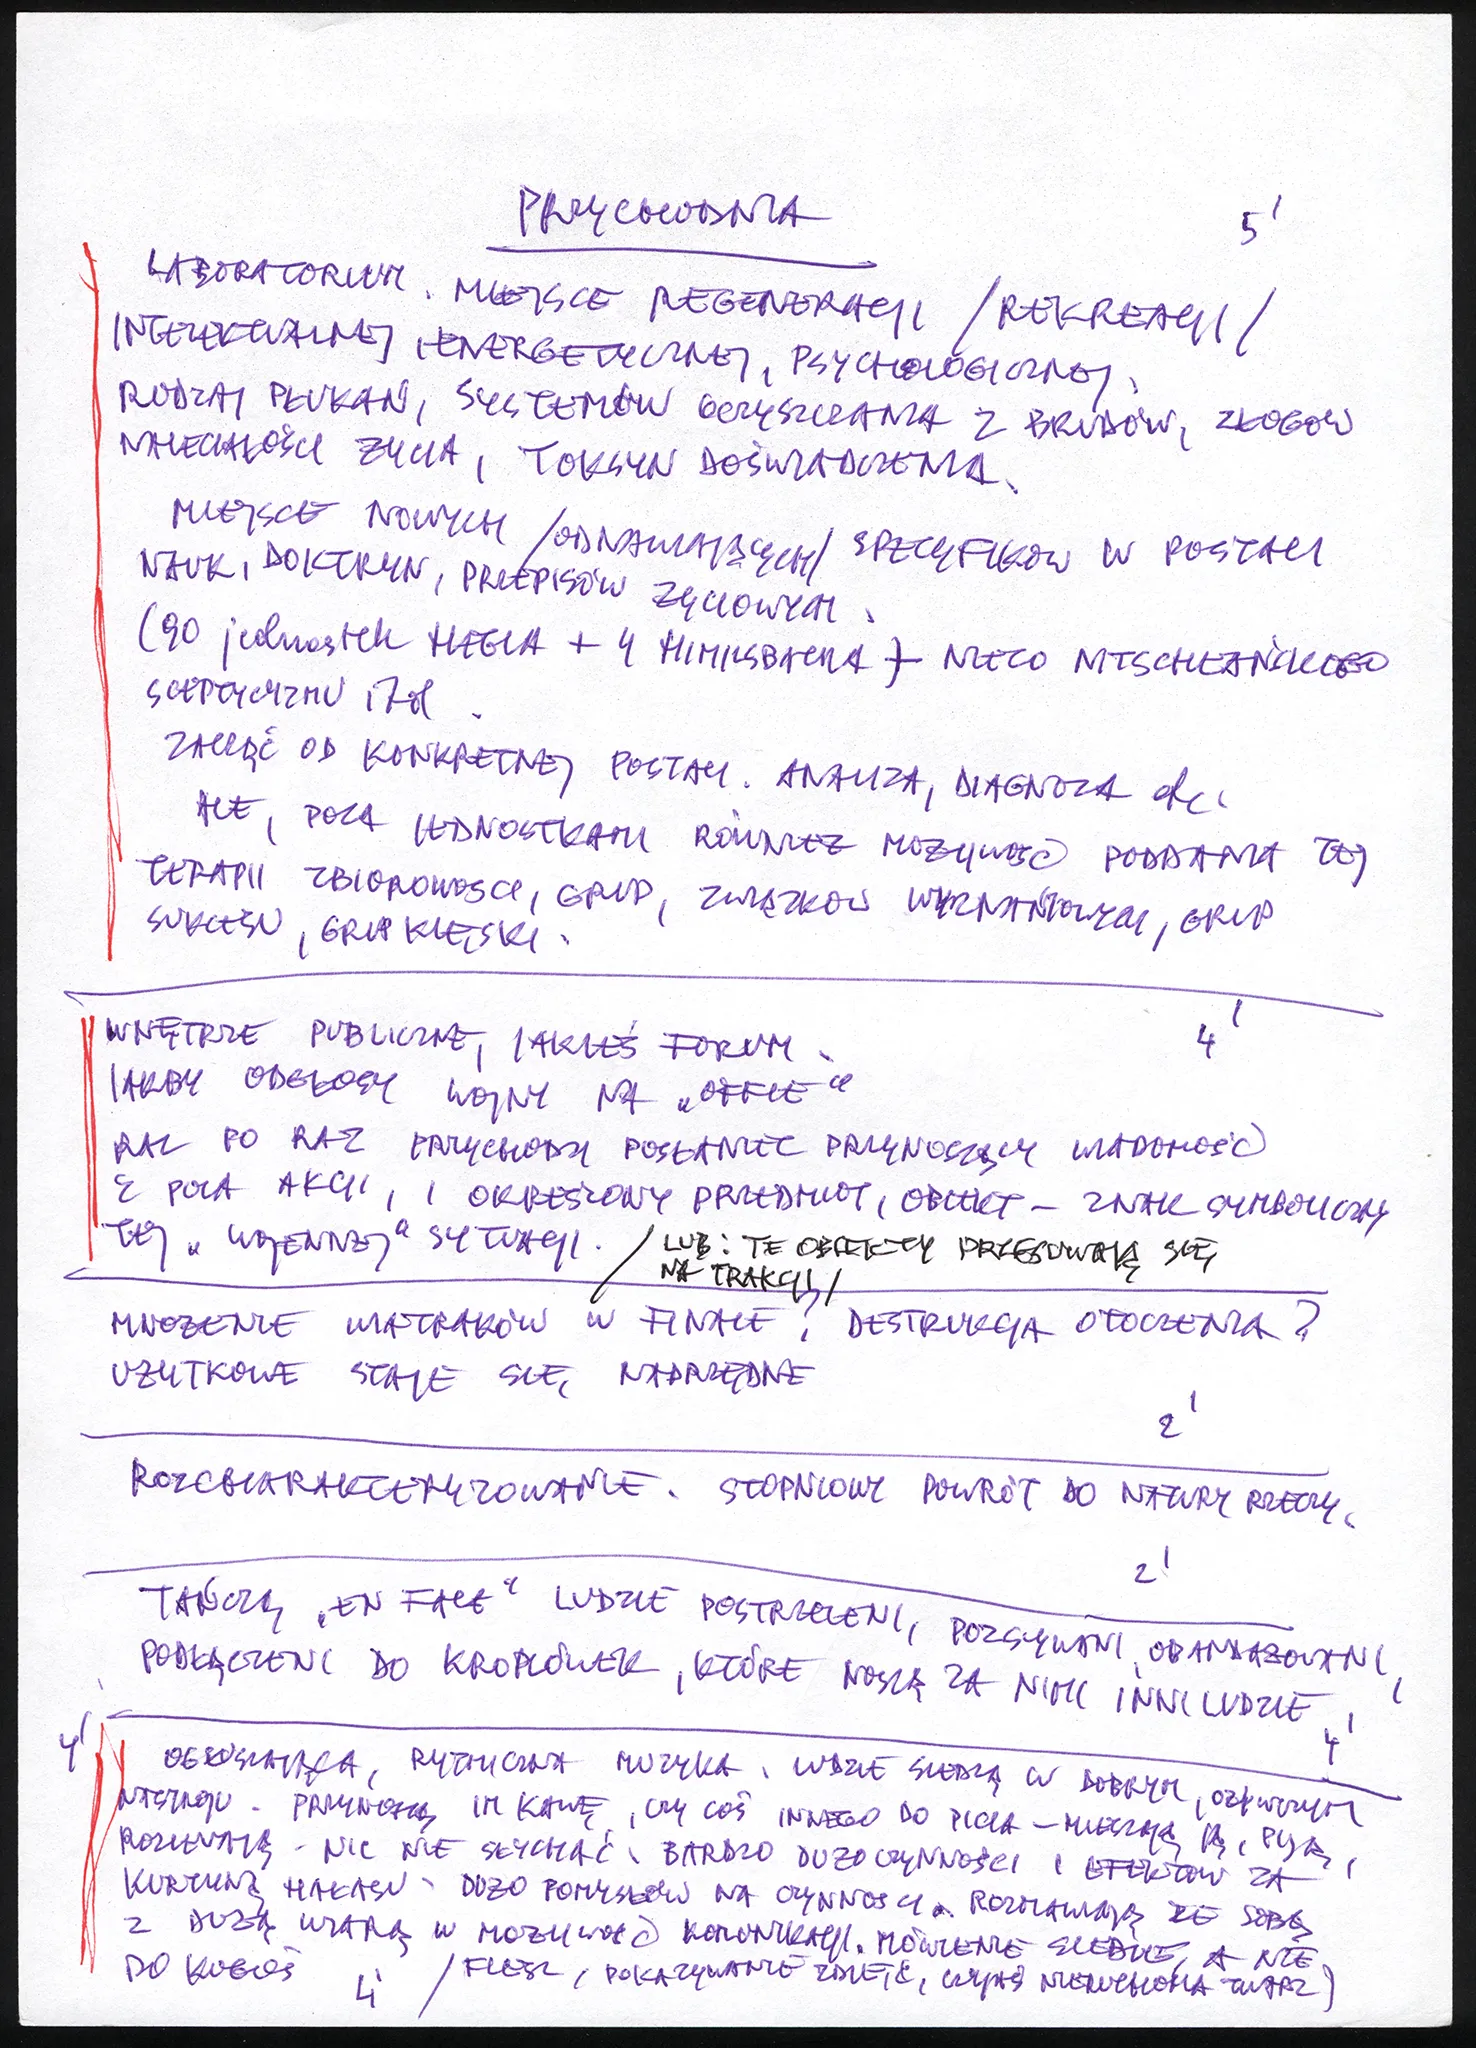 PRZYCHODNIA
5'
LABORATORIUM. MIEJSCE REGENERACJI /REKREACJI/
INTELEKTUALNEJ, ENERGETYCZNEJ, PSYCHOLOGICZNEJ.
RODZAJ PŁUKAŃ, SYSTEMÓW OCZYSZCZANIA Z BRUDÓW, ZŁOGÓW
NALECIAŁOŚCI ŻYCIA, TOKSYN DOŚWIADCZENIA.
MIEJSCE NOWYCH /ODNAWIAJĄCYCH/ SPECYFIKÓW W POSTACI
NAUK, DOKTRYN, PRZEPISÓW ŻYCIOWYCH.
(90 jednostek HEGLA + 4 HIMILSBACHA + NIECO NITSCHEAŃSKIEGO
SCEPTYCYZMU itd.
ZACZĄĆ OD KONKRETNEJ POSTACI. ANALIZA, DIAGNOZA etc.
ALE, POZA JEDNOSTKAMI RÓWNIEŻ MOŻLIWOŚĆ PODDANIA TEJ
TERAPII ZBIOROWOŚCI, GRUP, ZWIĄZKÓW WYZNANIOWYCH, GRUP
SUKCESU, GRUP KLĘSKI.
4'
WNĘTRZE PUBLICZNE, JAKIEŚ FORUM.
JAKBY ODGŁOSY WOJNY NA „OFFIE"
RAZ PO RAZ PRZYCHODZI POSŁANIEC PRZYNOSZĄCY WIADOMOŚĆ
Z POLA AKCJI, I OKREŚLONY PRZEDMIOT, OBIEKT – ZNAK SYMBOLICZNY
TEJ „WOJENNEJ" SYTUACJI. /LUB: TE OBIEKTY PRZESUWAJĄ SIĘ
NA TRAKCJI/
MNOŻENIE WIATRAKÓW W FINALE? DESTRUKCJA OTOCZENIA?
UŻYTKOWE STAJE SIĘ NADRZĘDNE
2'
ROZCHARAKTERYZOWANIE. STOPNIOWY POWRÓT DO NATURY RZECZY.
2'
TAŃCZĄ „EN FACE" LUDZIE POSTRZELENI, POZSZYWANI, OBANDAŻOWANI,
PODŁĄCZENI DO KROPLÓWEK, KTÓRE NOSZĄ ZA NIMI INNI LUDZIE
4'
4'
OGŁUSZAJĄCA, RYTMICZNA MUZYKA. LUDZIE SIEDZĄ W DOBRYM, OŻYWCZYM
NASTROJU. PRZYNOSZĄ IM KAWĘ, CZY COŚ INNEGO DO PICIA – MIESZAJĄ JĄ, PIJĄ,
ROZLEWAJĄ – NIC NIE SŁYCHAĆ. BARDZO DUŻO CZYNNOŚCI I EFEKTÓW ZA
KURTYNĄ HAŁASU. DUŻO POMYSŁÓW NA CZYNNOŚCI. ROZMAWIAJĄ ZE SOBĄ
Z DUŻĄ WIARĄ W MOŻLIWOŚĆ KOMUNIKACJI. MÓWIENIE SIEBIE, A NIE
DO KOGOŚ /FLESZ, POKAZYWANIE ZDJĘĆ, CZYJAŚ NIERUCHOMA TWARZ)
4'